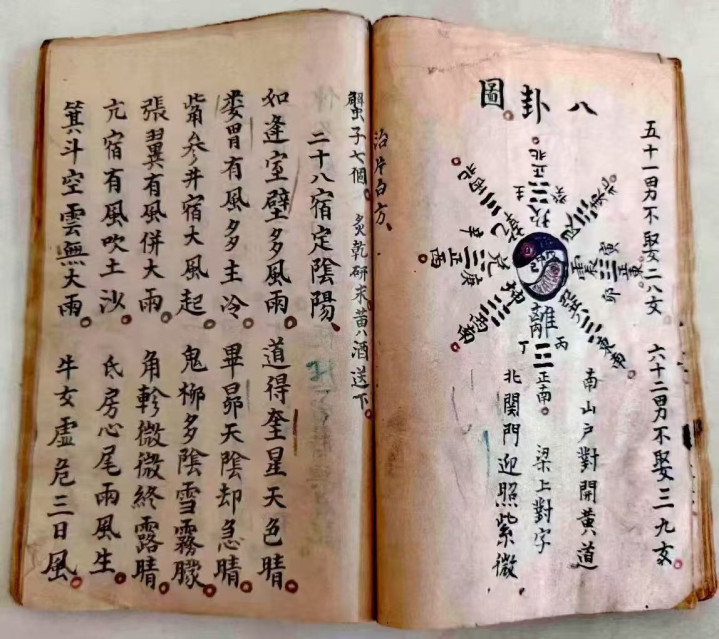 五十一男不娶二八女 六十二男不娶三九女。
八卦圖
正北
壬 癸
坎
東北
艮
正東
寅
震
卯
東南
巽
離
丙 丁
正南。
西南
坤
正西
庚 辛
兌
西北
南山戶對開黃道
梁上對字
北關門迎照紫微
白方、
蟹子七個 炙乾研末黃酒送下。
二十八宿定陰陽、
如逢室壁多風雨。道得奎星天色晴。
娄胃有風多主冷。畢昴天陰却急晴。
觜參井宿大風起。鬼柳多陰雪霧朦。
張翼有風併大雨。角軫微微終露晴。
亢宿有風吹土沙。氐房心尾雨風生。
箕斗空雲無大雨。牛女虛危三日風。